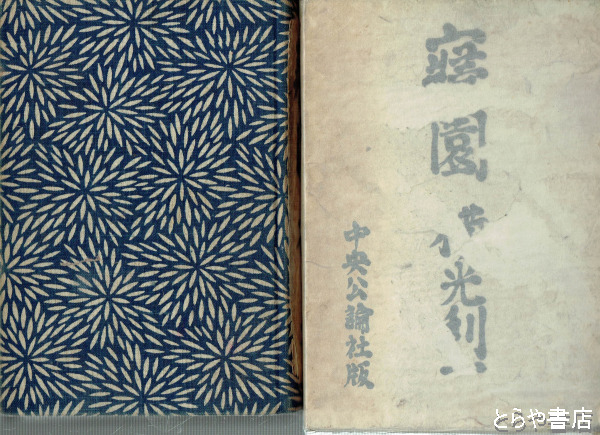 寢園
横光利一
中央公論社版
とらや書店